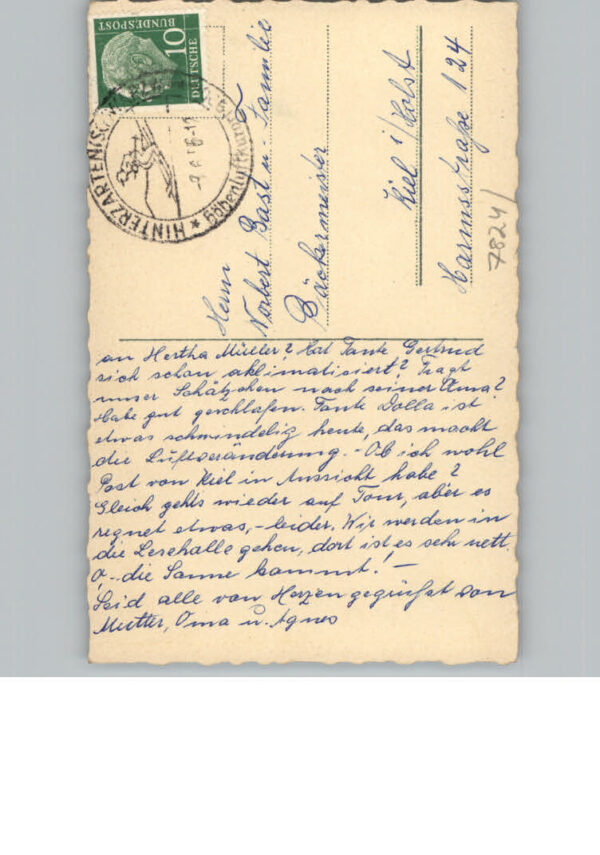 10
DEUTSCHE
BUNDESPOST
HINTERZARTEN
Höhenluftkurort
Herrn
Norbert Bast u. Familie
Bäckermeister
Kiel i/Holst
Harmsstraße 124
7824/
an Hertha Müller? Hat Tante Gertrud
sich schon aklimatisiert? Fragt
unser Schätzchen nach seiner Oma?
Habe gut geschlafen. Tante Dolla ist
etwas schwindelig heute, das macht
die Luftveränderung. - Ob ich wohl
Post von Kiel in Aussicht habe?
Gleich gehts wieder auf Tour, aber es
regnet etwas, - leider. Wir werden in
die Lesehalle gehen, dort ist es sehr nett.
O - die Sonne kommt! -
Seid alle von Herzen gegrüßt von
Mutter, Oma u. Agnes